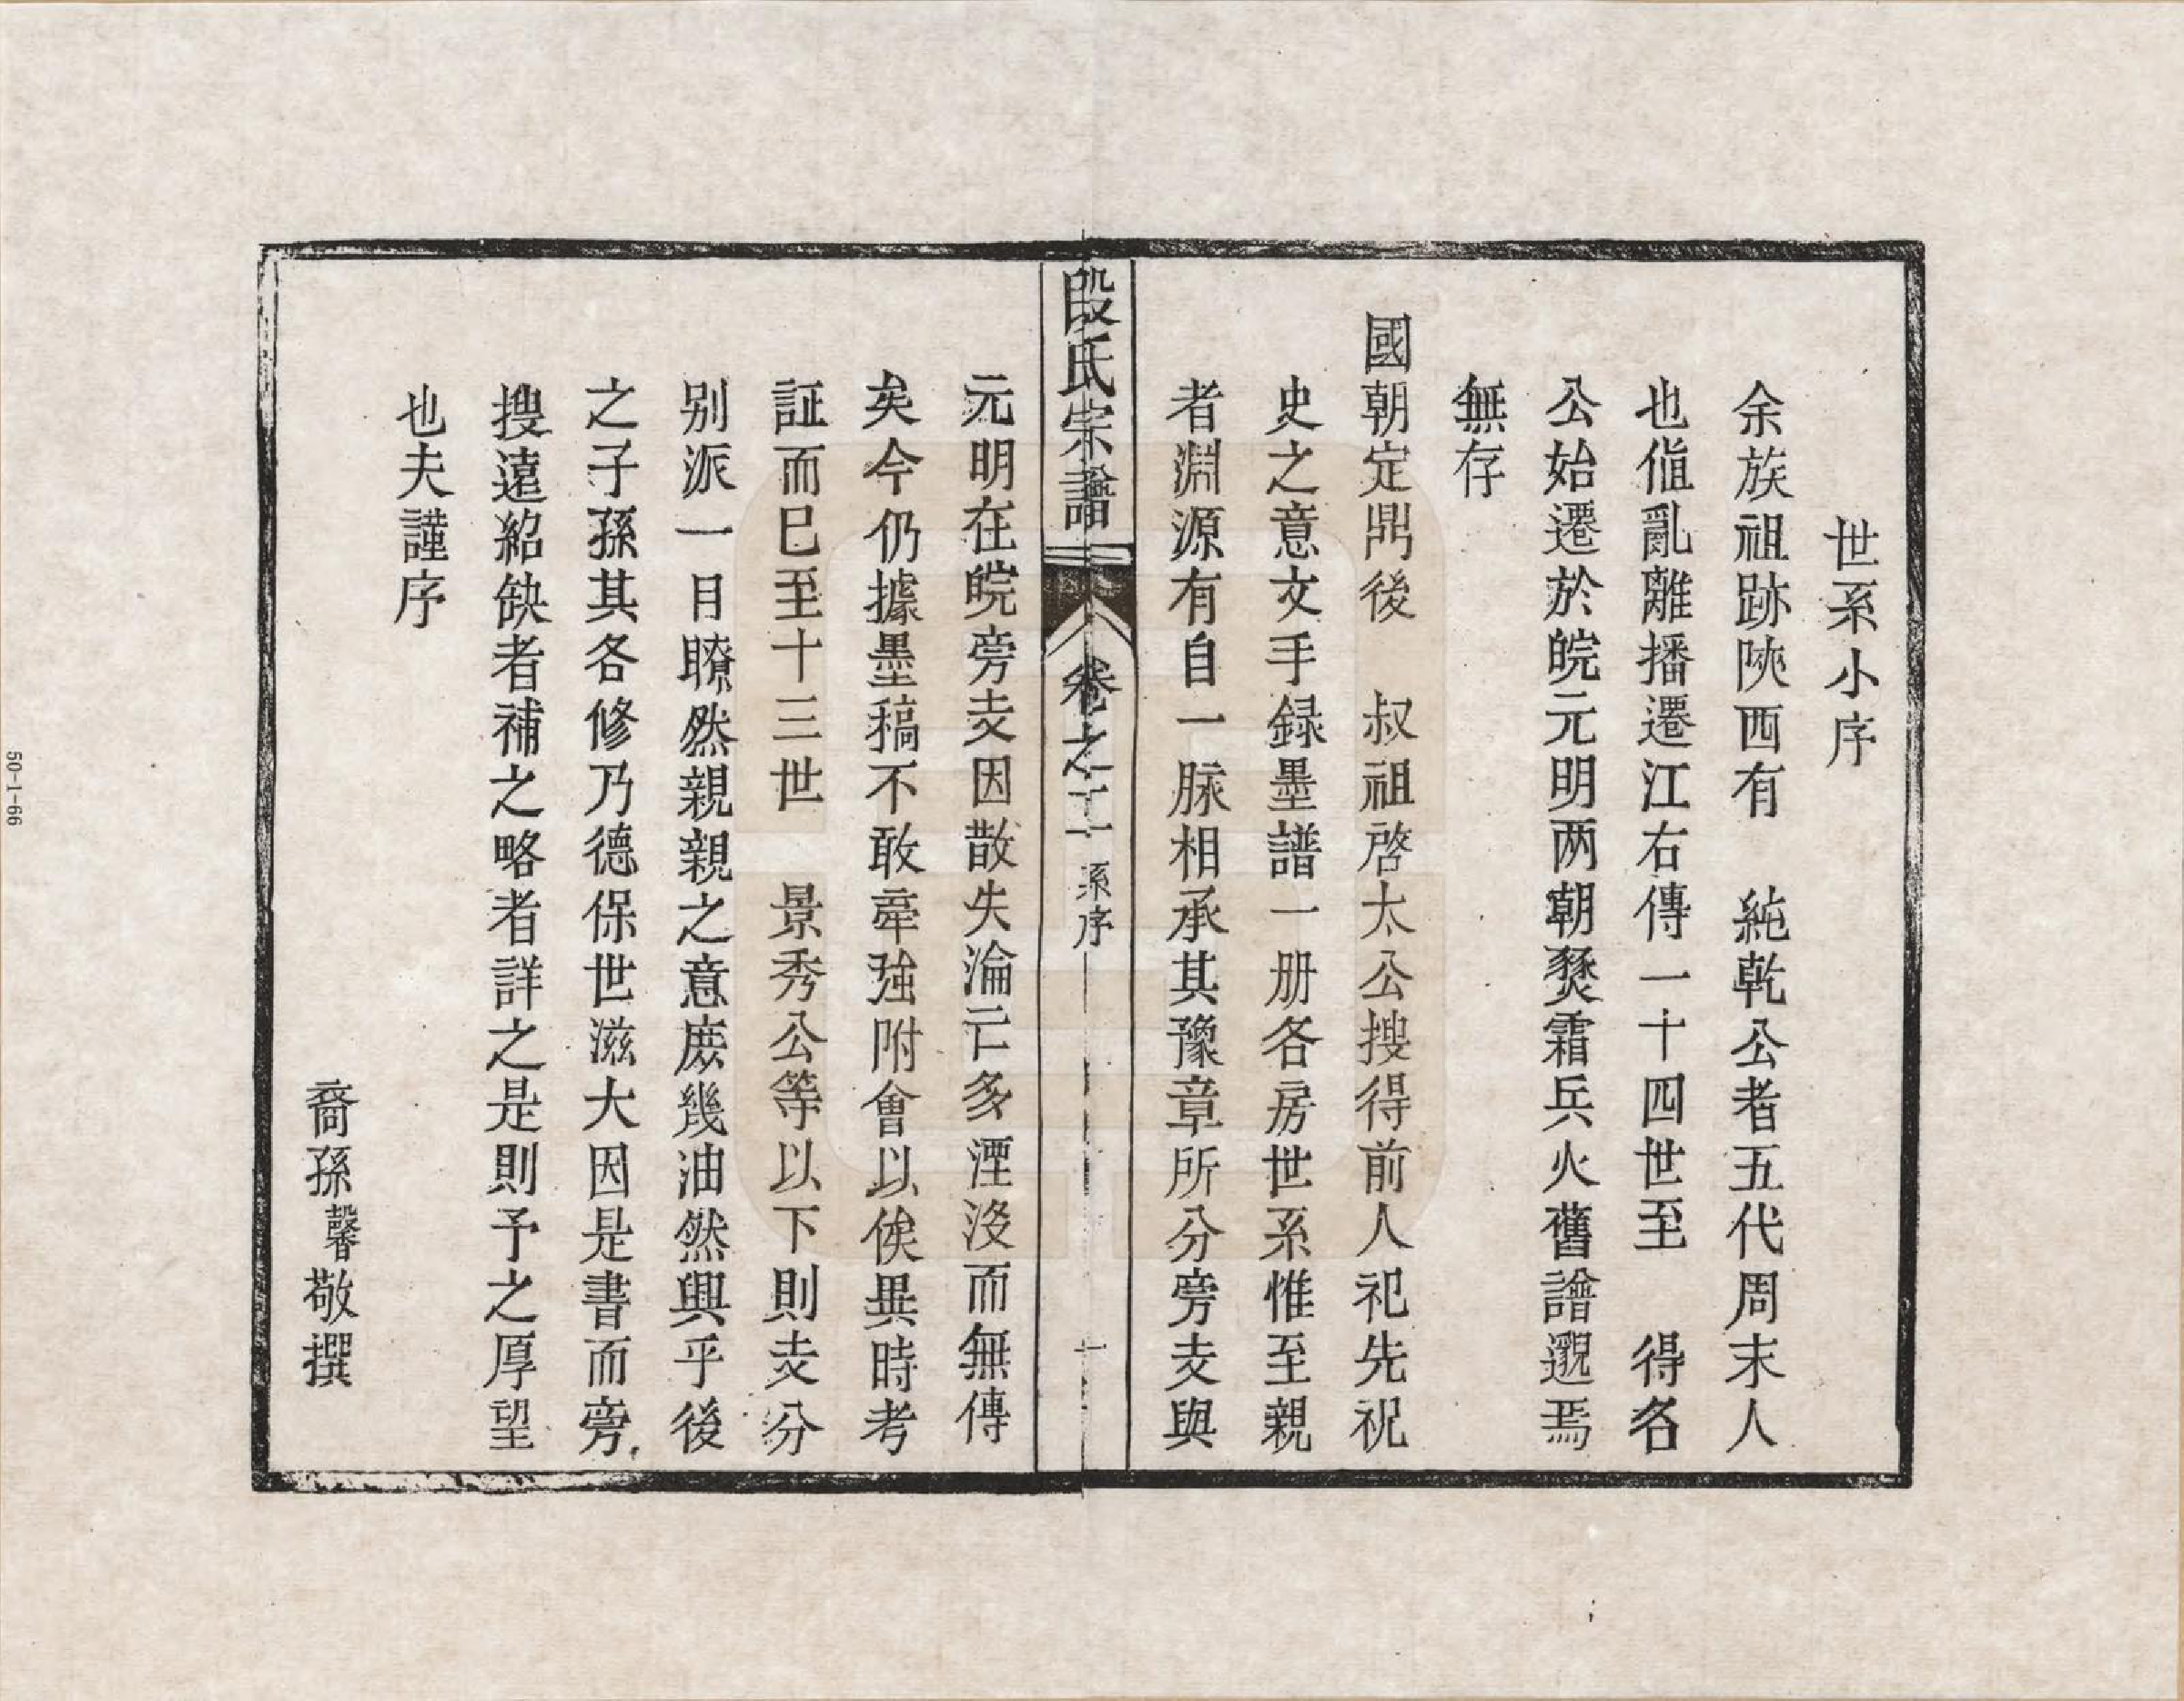 世系小序
余族祖跡陝西有　純乾公者五代周末人
也值亂離播遷江右傳一十四世至　得名
公始遷於皖元明两朝燹霜兵火舊譜邈焉
無存
國朝定鼎後　叔祖啓太公搜得前人祀先祝
史之意文手録墨譜一册各房世系惟至親
者淵源有自一脉相承其豫章所分旁支與
段氏宗譜　卷之二　系序　一
元明在皖旁支因散失淪亡多湮没而無傳
矣今仍據墨稿不敢牽強附會以俟異時考
証而已至十三世　景秀公等以下則支分
别派一目瞭然親親之意庶幾油然興乎後
之子孫其各修乃德保世滋大因是書而旁
搜遠紹缺者補之略者詳之是則予之厚望
也夫謹序
裔孫馨敬撰
50-1-66